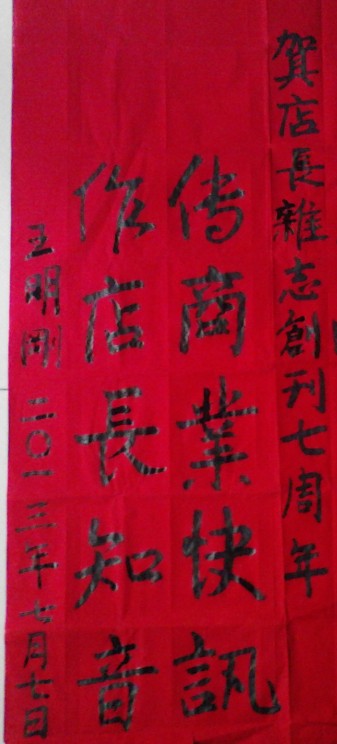 賀店長雜志創刊七周年
传商業快訊
作店長知音
王明刚 二〇一三年七月七日